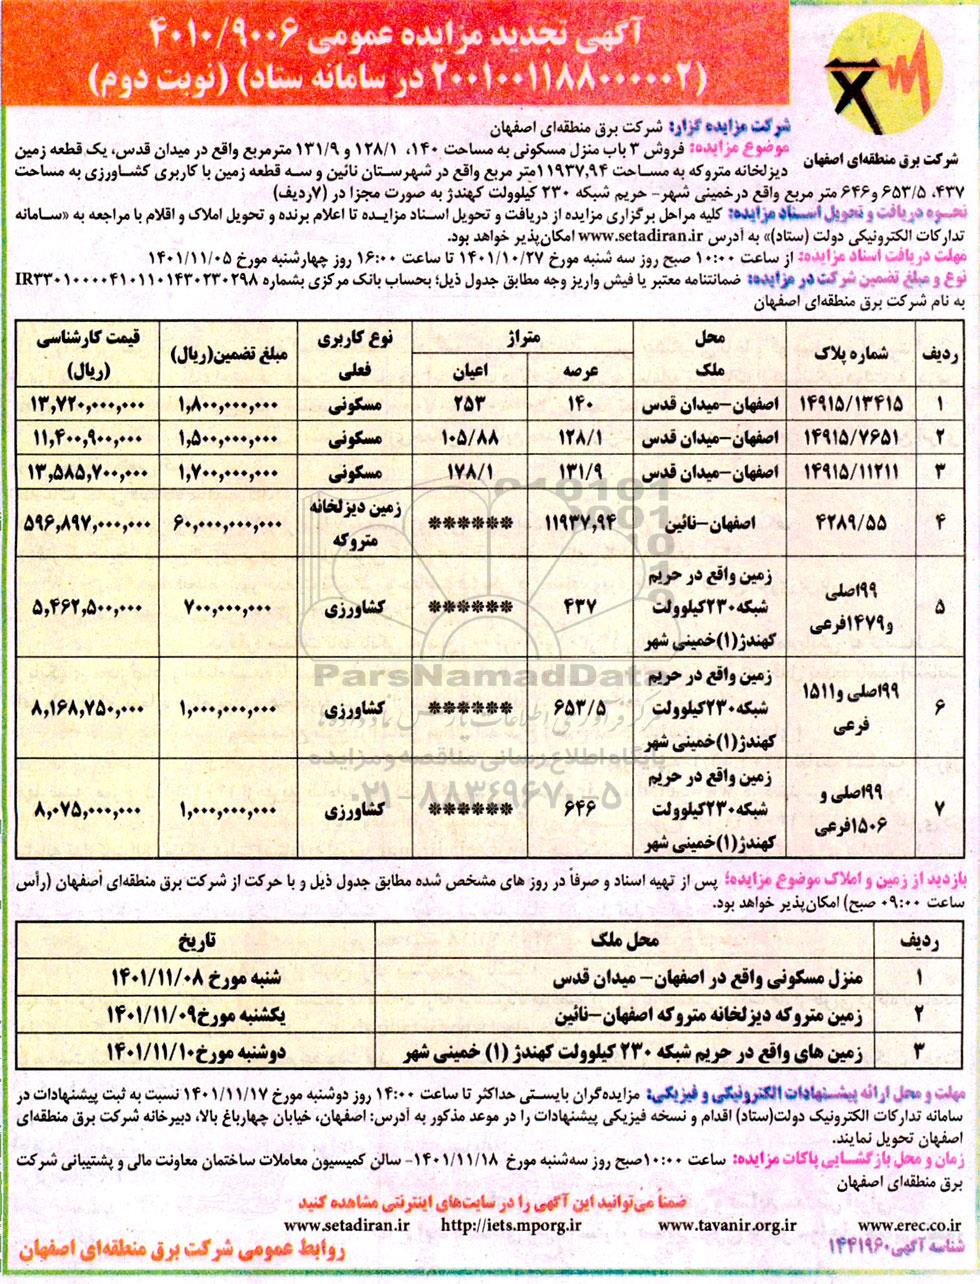 آگهی تجدید مزایده عمومی ۴۰۱۰/۹۰۰۶
(۲۰۰۱۰۰۱۱۸۸۰۰۰۰۰۲ در سامانه ستاد) (نوبت دوم)
شرکت برق منطقه‌ای اصفهان
شرکت مزایده گزار: شرکت برق منطقه‌ای اصفهان
موضوع مزایده: فروش ۳ باب منزل مسکونی به مساحت ۱۴۰، ۱۲۸/۱ و ۱۳۱/۹ مترمربع واقع در میدان قدس، یک قطعه زمین
دیزلخانه متروکه به مساحت ۱۱۹۳۷,۹۴متر مربع واقع در شهرستان نائین و سه قطعه زمین با کاربری کشاورزی به مساحت
۴۳۷، ۶۵۳/۵ و۶۴۶ متر مربع واقع درخمینی شهر- حریم شبکه ۲۳۰ کیلوولت کهندژ به صورت مجزا در (۷ردیف)
نحـوه دریافت و تحویل اسـناد مزایده: کلیه مراحل برگزاری مزایده از دریافت و تحویل اسـناد مزایـده تا اعلام برنده و تحویل املاک و اقلام با مراجعه به «سـامانه
تدارکات الکترونیکی دولت (ستاد)» به آدرس www.setadiran.ir امکان‌پذیر خواهد بود.
مهلت دریافت اسناد مزایده: از ساعت ۱۰:۰۰ صبح روز سه شنبه مورخ ۱۴۰۱/۱۰/۲۷ تا ساعت ۱۶:۰۰ روز چهارشنبه مورخ ۱۴۰۱/۱۱/۰۵
نوع و مبلغ تضمین شرکت در مزایده: ضمانتنامه معتبر یا فیش واریز وجه مطابق جدول ذیل؛ بحساب بانک مرکزی بشماره IR۳۳۰۱۰۰۰۰۴۱۰۱۱۰۱۴۳۰۲۳۰۲۹۸
به نام شرکت برق منطقه‌ای اصفهان
ردیف شماره پلاک محل ملک متراژ عرصه اعیان نوع کاربری فعلی مبلغ تضمین(ریال) قیمت کارشناسی (ریال)
۱ ۱۴۹۱۵/۱۳۴۱۵ اصفهان-میدان قدس ۱۴۰ ۲۵۳ مسکونی ۱,۸۰۰,۰۰۰,۰۰۰ ۱۳,۷۲۰,۰۰۰,۰۰۰
۲ ۱۴۹۱۵/۷۶۵۱ اصفهان-میدان قدس ۱۲۸/۱ ۱۰۵/۸۸ مسکونی ۱,۵۰۰,۰۰۰,۰۰۰ ۱۱,۴۰۰,۹۰۰,۰۰۰
۳ ۱۴۹۱۵/۱۱۲۱۱ اصفهان-میدان قدس ۱۳۱/۹ ۱۷۸/۱ مسکونی ۱,۷۰۰,۰۰۰,۰۰۰ ۱۳,۵۸۵,۷۰۰,۰۰۰
۴ ۴۲۸۹/۵۵ اصفهان-نائین ۱۱۹۳۷,۹۴ ****** زمین دیزلخانه متروکه ۶۰,۰۰۰,۰۰۰,۰۰۰ ۵۹۶,۸۹۷,۰۰۰,۰۰۰
۵ ۹۹اصلی و۱۴۷۹فرعی زمین واقع در حریم شبکه۲۳۰کیلوولت کهندژ(۱)خمینی شهر ۴۳۷ ****** کشاورزی ۷۰۰,۰۰۰,۰۰۰ ۵,۴۶۲,۵۰۰,۰۰۰
۶ ۹۹اصلی و۱۵۱۱ فرعی زمین واقع در حریم شبکه۲۳۰کیلوولت کهندژ(۱)خمینی شهر ۶۵۳/۵ ****** کشاورزی ۱,۰۰۰,۰۰۰,۰۰۰ ۸,۱۶۸,۷۵۰,۰۰۰
۷ ۹۹اصلی و ۱۵۰۶فرعی زمین واقع در حریم شبکه۲۳۰کیلوولت کهندژ(۱)خمینی شهر ۶۴۶ ****** کشاورزی ۱,۰۰۰,۰۰۰,۰۰۰ ۸,۰۷۵,۰۰۰,۰۰۰
ParsNamadData
مرکز فرآوری اطلاعات پارس نماد داده‌ها
پایگاه اطلاع رسانی مناقصه و مزایده
۰۲۱-۸۸۳۴۹۶۷۰-۵
بازدید از زمین و املاک موضوع مزایده؛ پس از تهیه اسناد و صرفاً در روز های مشخص شده مطابق جدول ذیل و با حرکت از شرکت برق منطقه‌ای اصفهان (رأس
ساعت ۰۹:۰۰ صبح) امکان‌پذیر خواهد بود.
ردیف محل ملک تاریخ
۱ منزل مسکونی واقع در اصفهان- میدان قدس شنبه مورخ ۱۴۰۱/۱۱/۰۸
۲ زمین متروکه دیزلخانه متروکه اصفهان-نائین یکشنبه مورخ۱۴۰۱/۱۱/۰۹
۳ زمین های واقع در حریم شبکه ۲۳۰ کیلوولت کهندژ (۱) خمینی شهر دوشنبه مورخ۱۴۰۱/۱۱/۱۰
مهلت و محل ارائه پیشـنهادات الکترونیکی و فیزیکی: مزایده‌گران بایسـتی حداکثر تا ساعت ۱۴:۰۰ روز دوشنبه مورخ ۱۴۰۱/۱۱/۱۷ نسبت به ثبت پیشنهادات در
سامانه تدارکات الکترونیک دولت(ستاد) اقدام و نسخه فیزیکی پیشنهادات را در موعد مذکور به آدرس: اصفهان، خیابان چهارباغ بالا، دبیرخانه شرکت برق منطقه‌ای
اصفهان تحویل نمایند.
زمان و محل بازگشـایی پاکات مزایده: ساعت ۱۰:۰۰صبح روز سه‌شنبه مورخ ۱۴۰۱/۱۱/۱۸- سالن کمیسیون معاملات ساختمان معاونت مالی و پشتیبانی شرکت
برق منطقه‌ای اصفهان
ضمنا می‌توانید این آگهی را در سایت‌های اینترنتی مشاهده کنید
www.erec.co.ir www.tavanir.org.ir http://iets.mporg.ir www.setadiran.ir
شناسه آگهی۱۴۴۱۹۶۰
روابط عمومی شرکت برق منطقه‌ای اصفهان